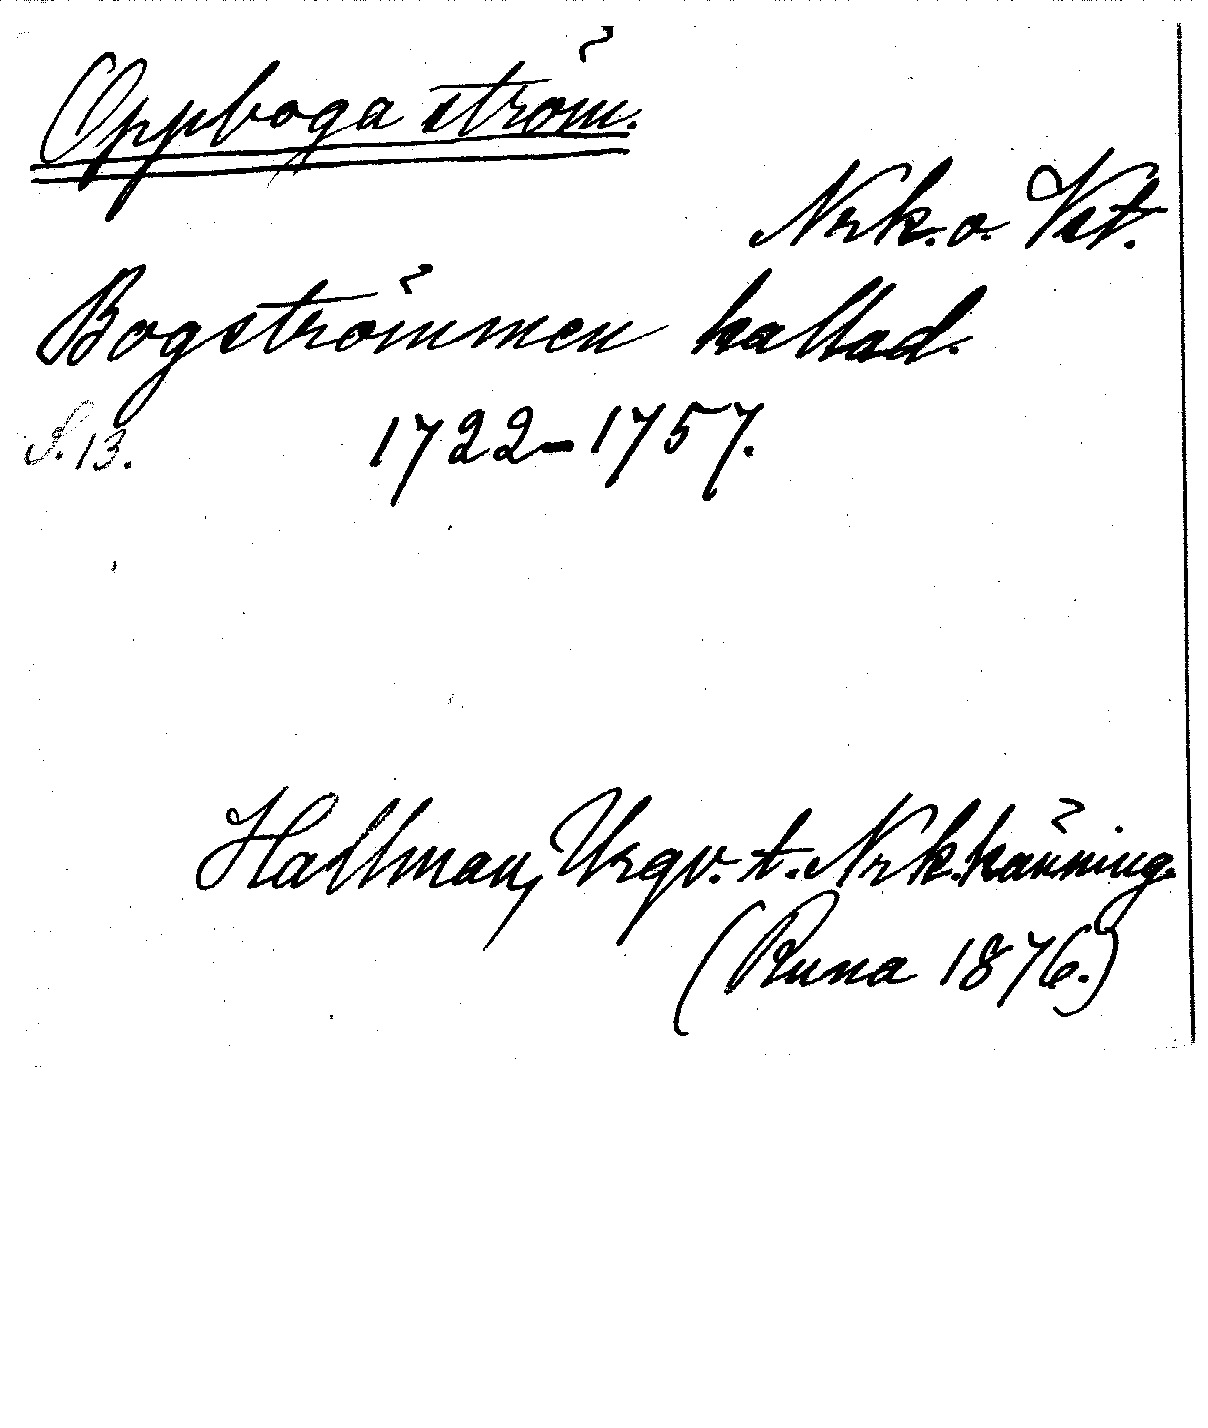 Oppboga ström.
Nrk. o. Vst.
Bogströmmen kallad.
S. 13. 1722–1757.
Hallman, Urgv. t. Nrk. känning.
(Runa 1876.)